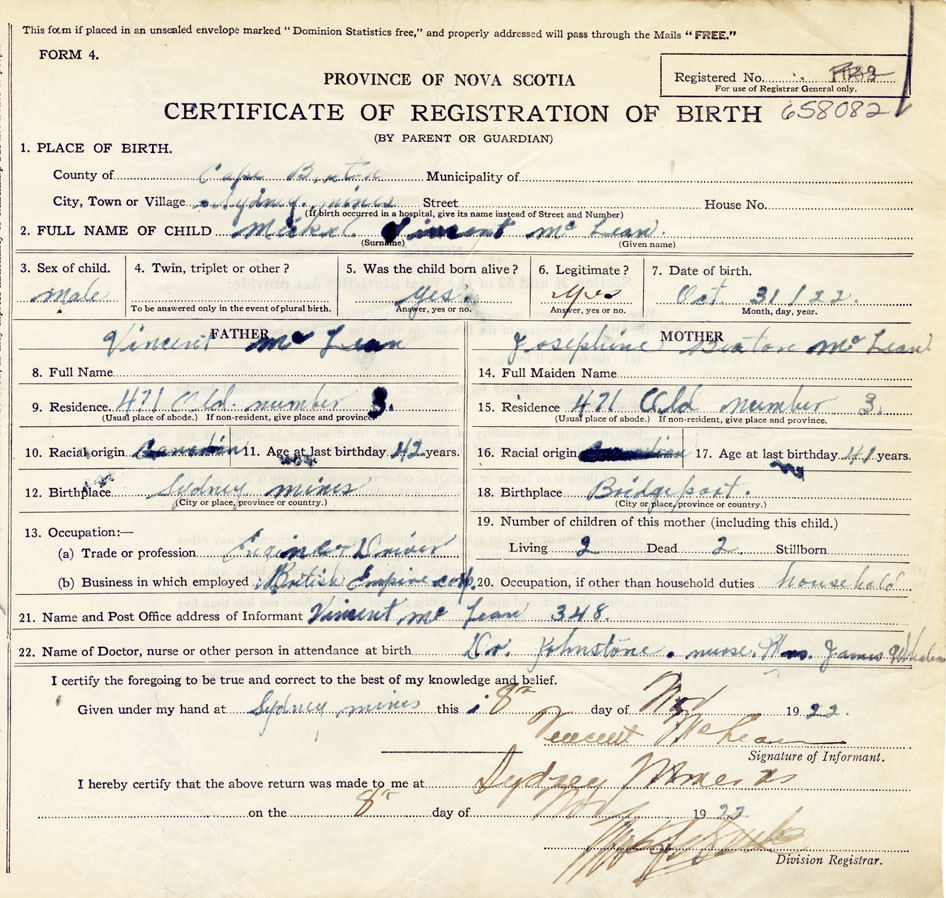 This form if placed in an unsealed envelope marked "Dominion Statistics free," and properly addressed will pass through the Mails "FREE."
FORM 4.
PROVINCE OF NOVA SCOTIA
Registered No.
For use of Registrar General only.
CERTIFICATE OF REGISTRATION OF BIRTH 658082
(BY PARENT OR GUARDIAN)
1. PLACE OF BIRTH.
County of Cape Breton Municipality of
City, Town or Village Sydney mines Street House No.
(If birth occurred in a hospital, give its name instead of Street and Number)
2. FULL NAME OF CHILD Mickel Vincent Mc Lean.
(Surname) (Given name)
3. Sex of child. 4. Twin, triplet or other? 5. Was the child born alive? 6. Legitimate? 7. Date of birth.
male yes. yes Oct 31/22.
To be answered only in the event of plural birth. Answer, yes or no. Answer, yes or no. Month, day, year.
FATHER MOTHER
Vincent Mc Lean Josephine Beaton Mc Lean
8. Full Name 14. Full Maiden Name
9. Residence. 471 Old number 3. 15. Residence 471 Old number 3.
(Usual place of abode.) If non-resident, give place and province. (Usual place of abode.) If non-resident, give place and province.
10. Racial origin 11. Age at last birthday 42 years. 16. Racial origin 17. Age at last birthday 41 years.
12. Birthplace Sydney mines 18. Birthplace Bridgeport.
(City or place, province or country.) (City or place, province or country.)
13. Occupation:— 19. Number of children of this mother (including this child.)
(a) Trade or profession Engine Driver Living 2 Dead 2 Stillborn
(b) Business in which employed British Empire corp. 20. Occupation, if other than household duties household
21. Name and Post Office address of Informant Vincent Mc Lean 348.
22. Name of Doctor, nurse or other person in attendance at birth Dr. Johnstone. nurse. Mrs. James Whalen
I certify the foregoing to be true and correct to the best of my knowledge and belief.
Given under my hand at Sydney mines this 8th day of Nov 1922.
Vincent McLean
Signature of Informant.
I hereby certify that the above return was made to me at Sydney Mines NS
on the 8th day of Nov 1922
Division Registrar.